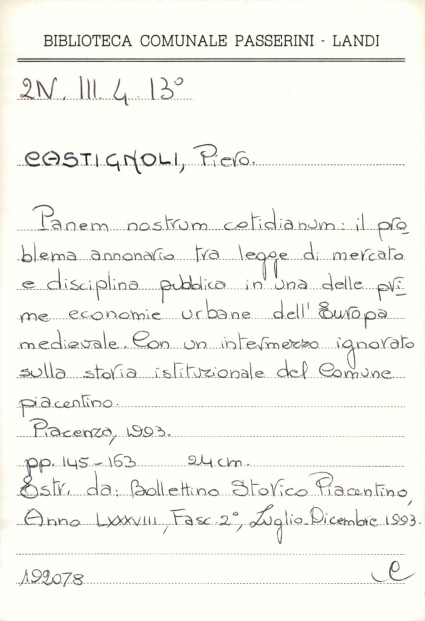 BIBLIOTECA COMUNALE PASSERINI - LANDI
2N. III. 4. 13°
CASTIGNOLI, Piero.
Panem nostrum cotidianum: il pro-
blema annonario tra legge di mercato
e disciplina pubblica in una delle pri-
me economie urbane dell'Europa
medievale. Con un intermezzo ignorato
sulla storia istituzionale del Comune
piacentino.
Piacenza, 1993.
pp. 145-163 24 cm.
Estr. da: Bollettino Storico Piacentino,
Anno LXXXVIII, Fasc. 2°, Luglio-Dicembre 1993.
192078 C